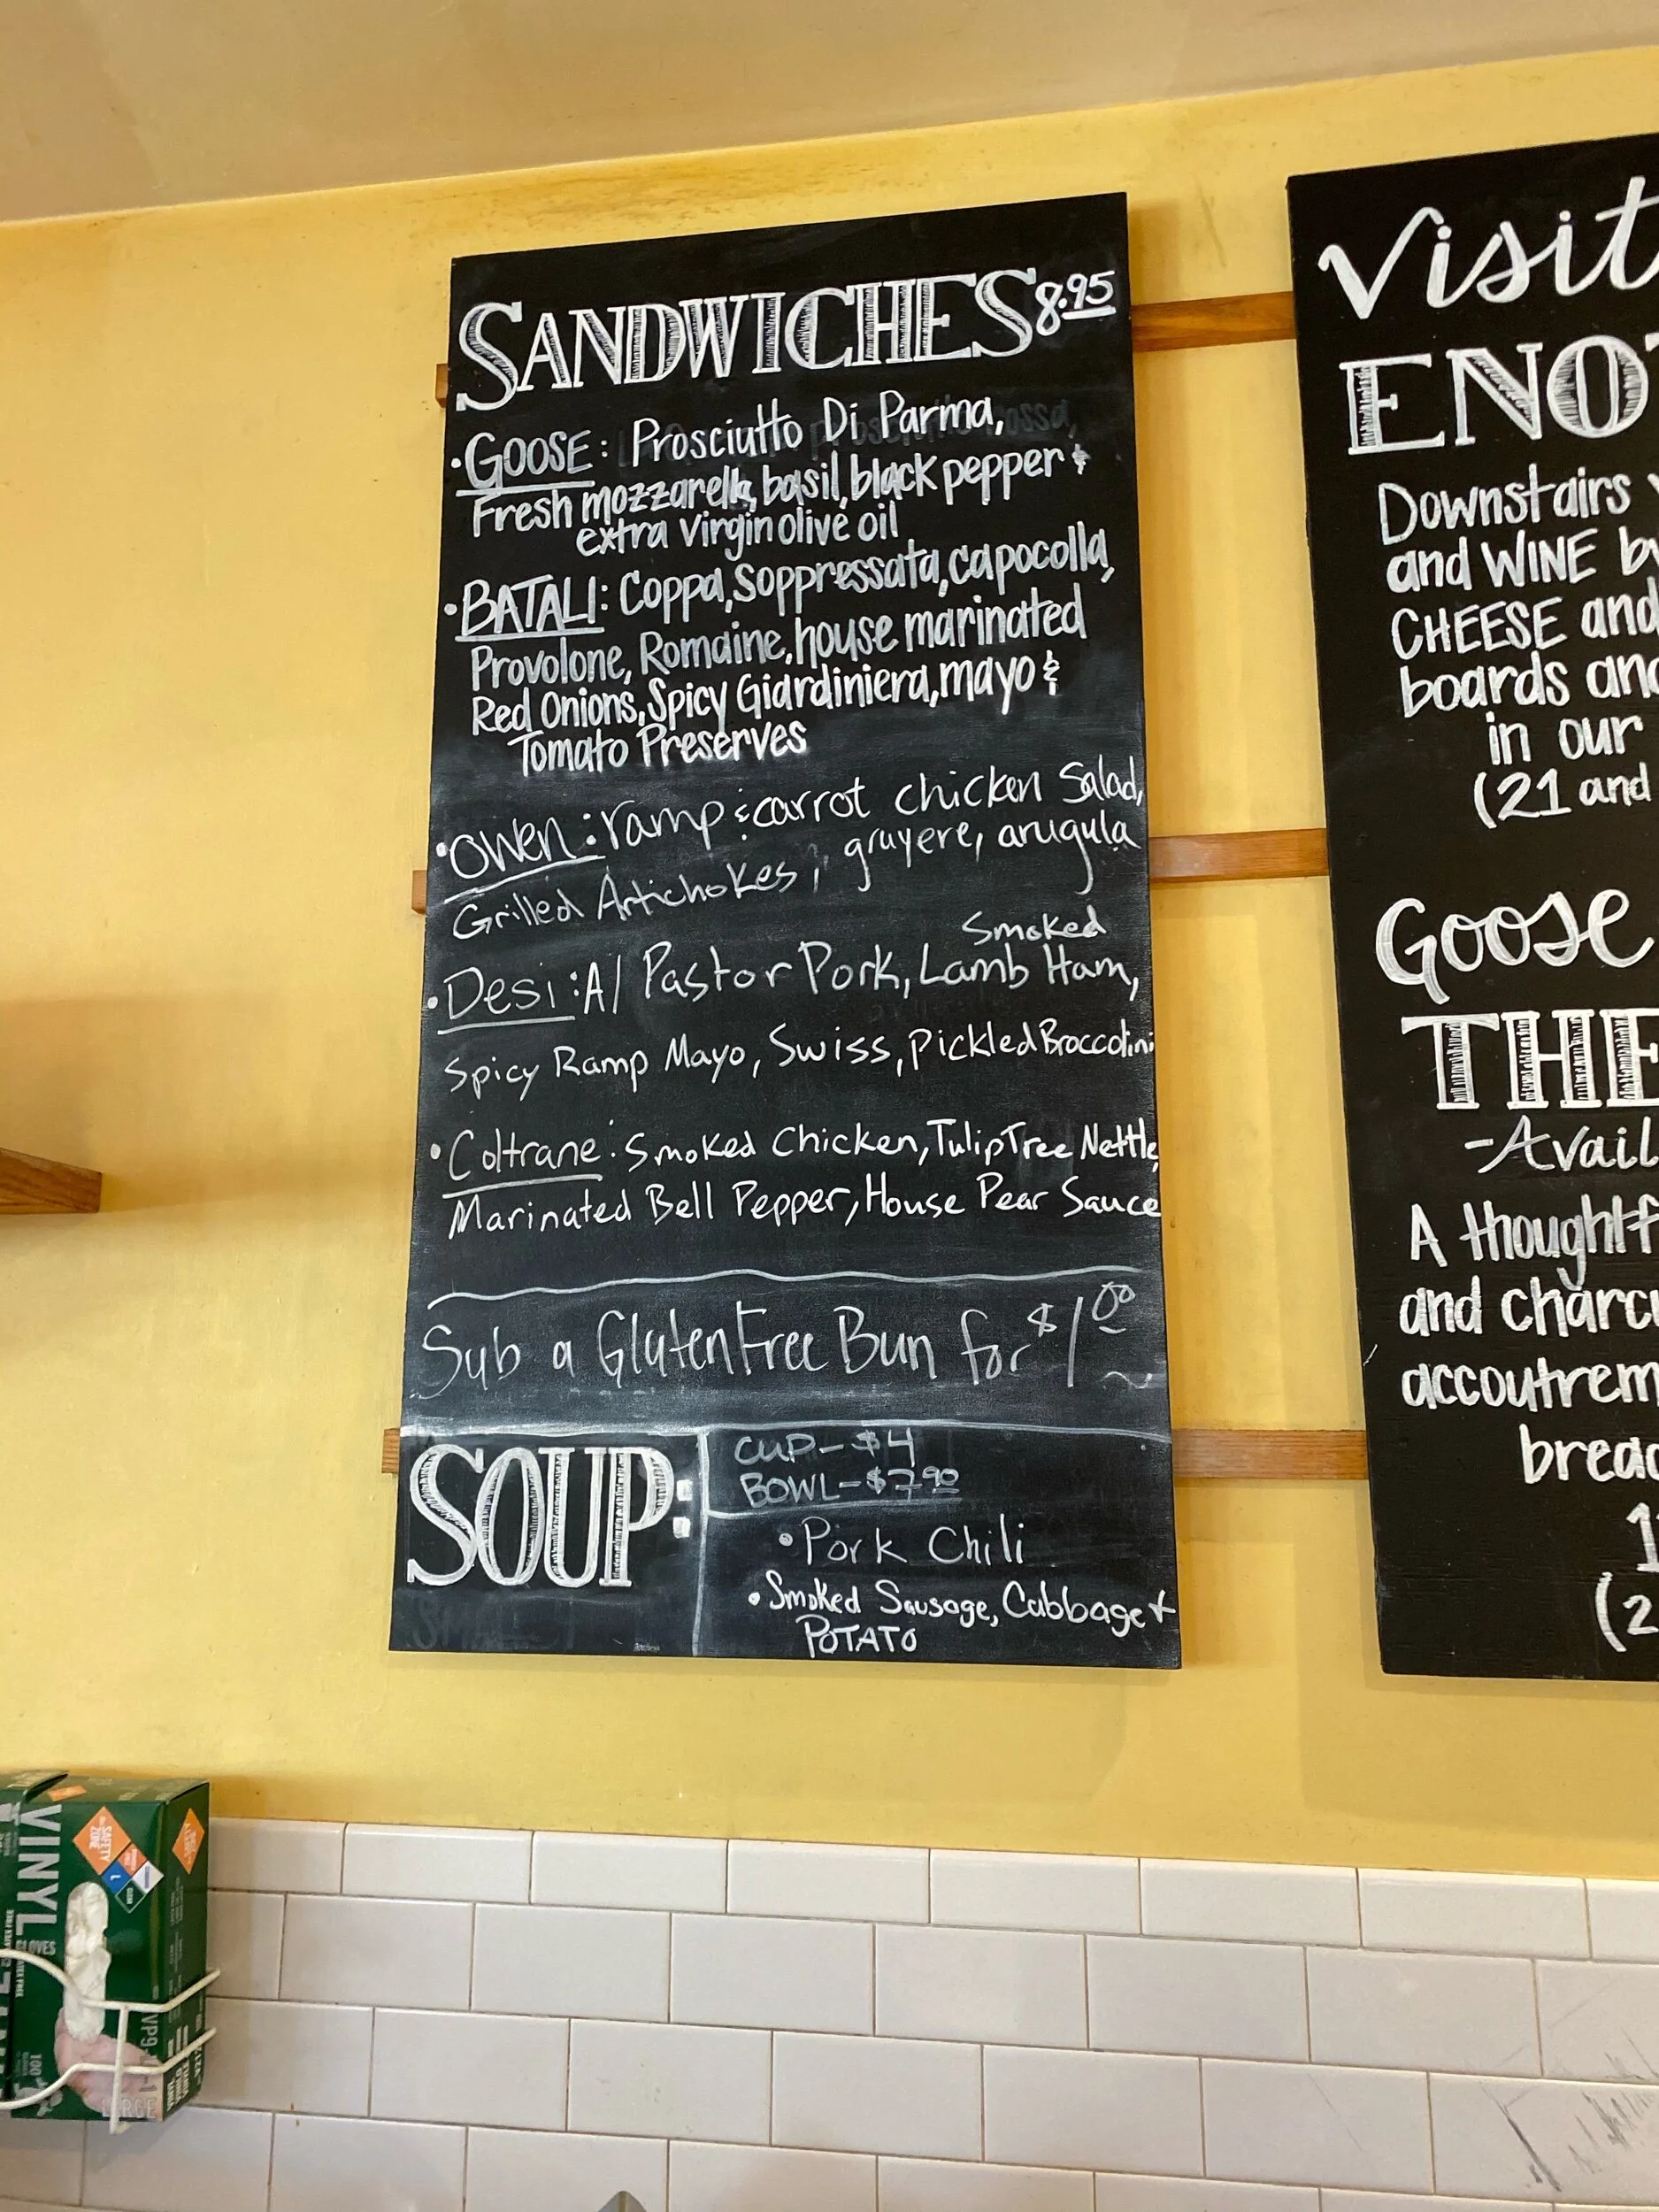 SANDWICHES 8.95
• GOOSE: Prosciutto Di Parma,
Fresh mozzarella, basil, black pepper &
extra virgin olive oil
• BATALI: Coppa, Soppressata, capocolla,
Provolone, Romaine, house marinated
Red Onions, Spicy Giardiniera, mayo &
Tomato Preserves
• Owen: ramp & carrot chicken Salad,
Grilled Artichokes, gruyere, arugula
Smoked
• Desi: Al Pastor Pork, Lamb Ham,
Spicy Ramp Mayo, Swiss, Pickled Broccolini
• Coltrane: Smoked Chicken, TulipTree Nettle,
Marinated Bell Pepper, House Pear Sauce
Sub a Gluten Free Bun for $1.00
SOUP:
CUP - $4
BOWL - $7.90
• Pork Chili
• Smoked Sausage, Cabbage +
POTATO
Visit
ENO
Downstairs
and WINE by
CHEESE and
boards and
in our
(21 and
Goose
THE
- Avail
A thoughtf
and charcu
accoutrem
bread
1
(2
VINYL
GLOVES
SAFETY
ZONE
100
LARGE